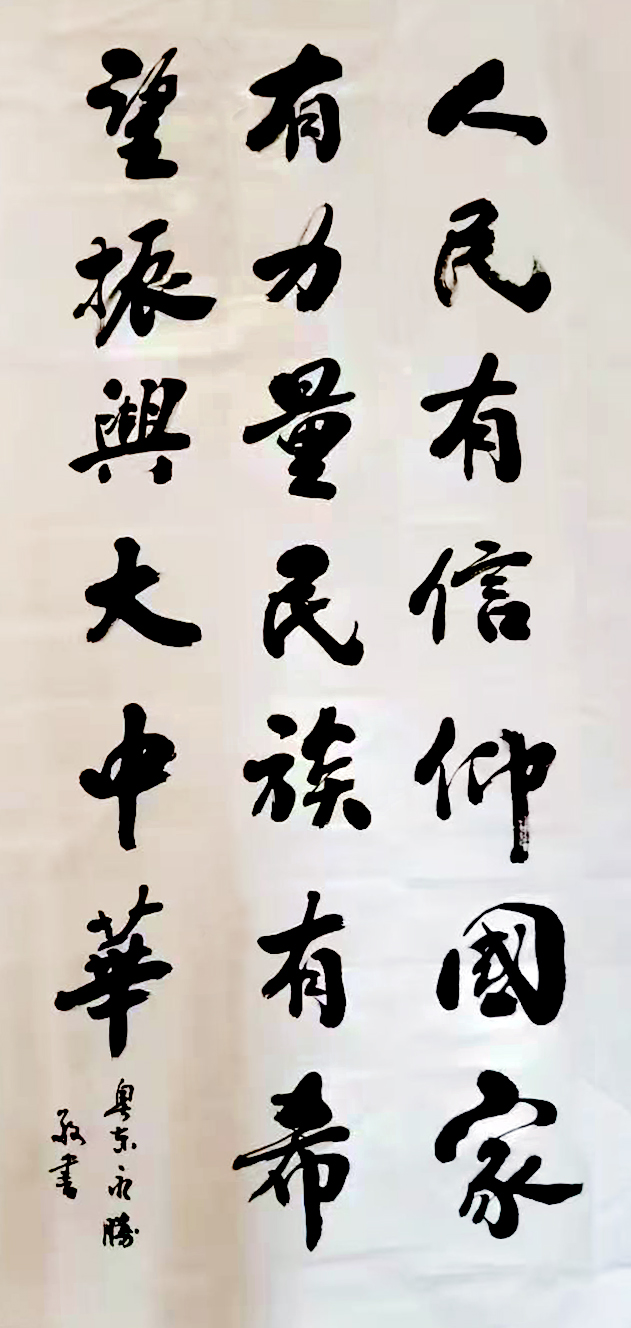 人民有信仰國家
有力量民族有希
望振興大中華
粤东永勝
敬書